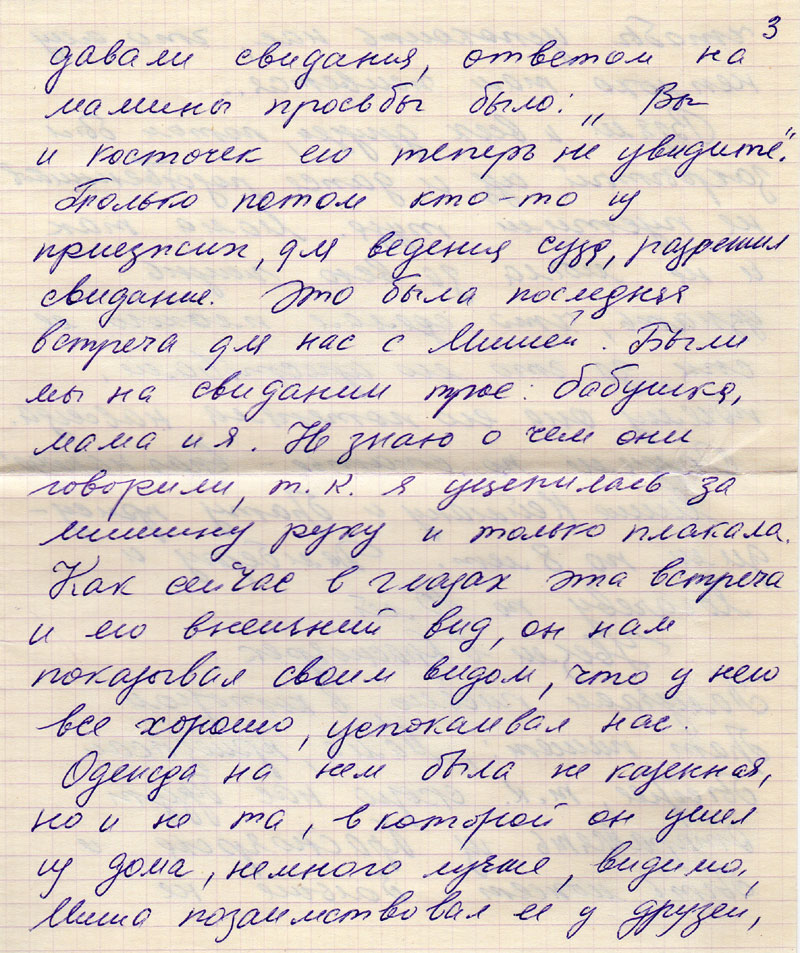 3
давали свидания, ответом на
мамины просьбы было: „ Вы
и косточек его теперь не увидите“.
Только потом кто-то из
приезжих, для ведения суда, разрешил
свидание. Это была последняя
встреча для нас с Мишей. Были
мы на свидании трое: бабушка,
мама и я. Не знаю о чем они
говорили, т. к. я уцепилась за
мишину руку и только плакала.
Как сейчас в глазах эта встреча
и его внешний вид, он нам
показывал своим видом, что у него
все хорошо, успокаивал нас.
Одежда на нем была не казенная,
но и не та, в которой он ушел
из дома, немного лучше, видимо,
Миша позаимствовал ее у друзей,